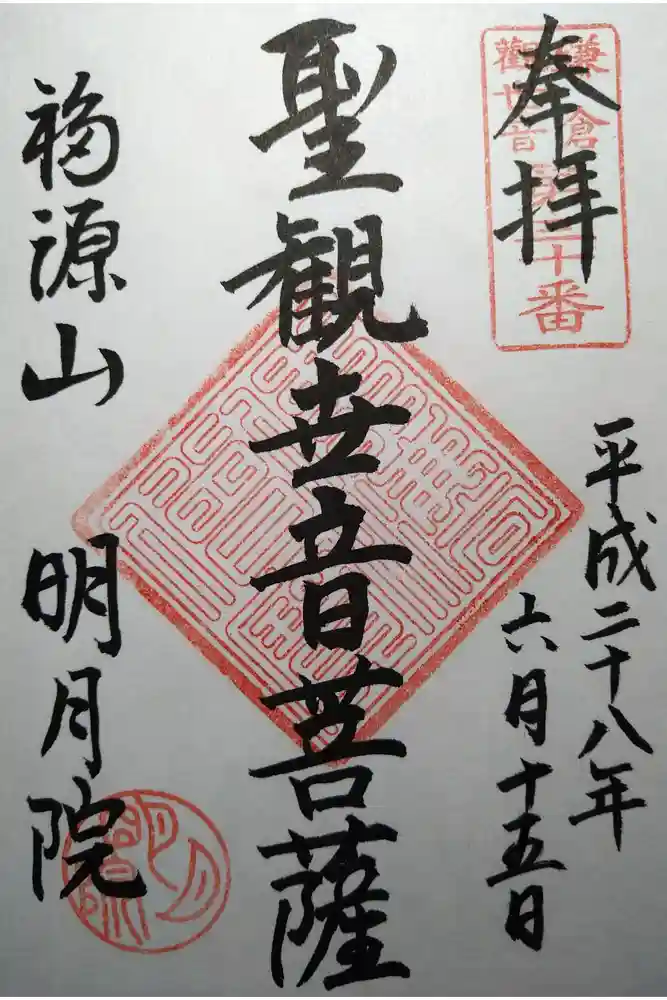 奉拝
鎌倉
觀世音
第三十番
平成二十八年
六月十五日
聖観世音菩薩
福源山
明月院